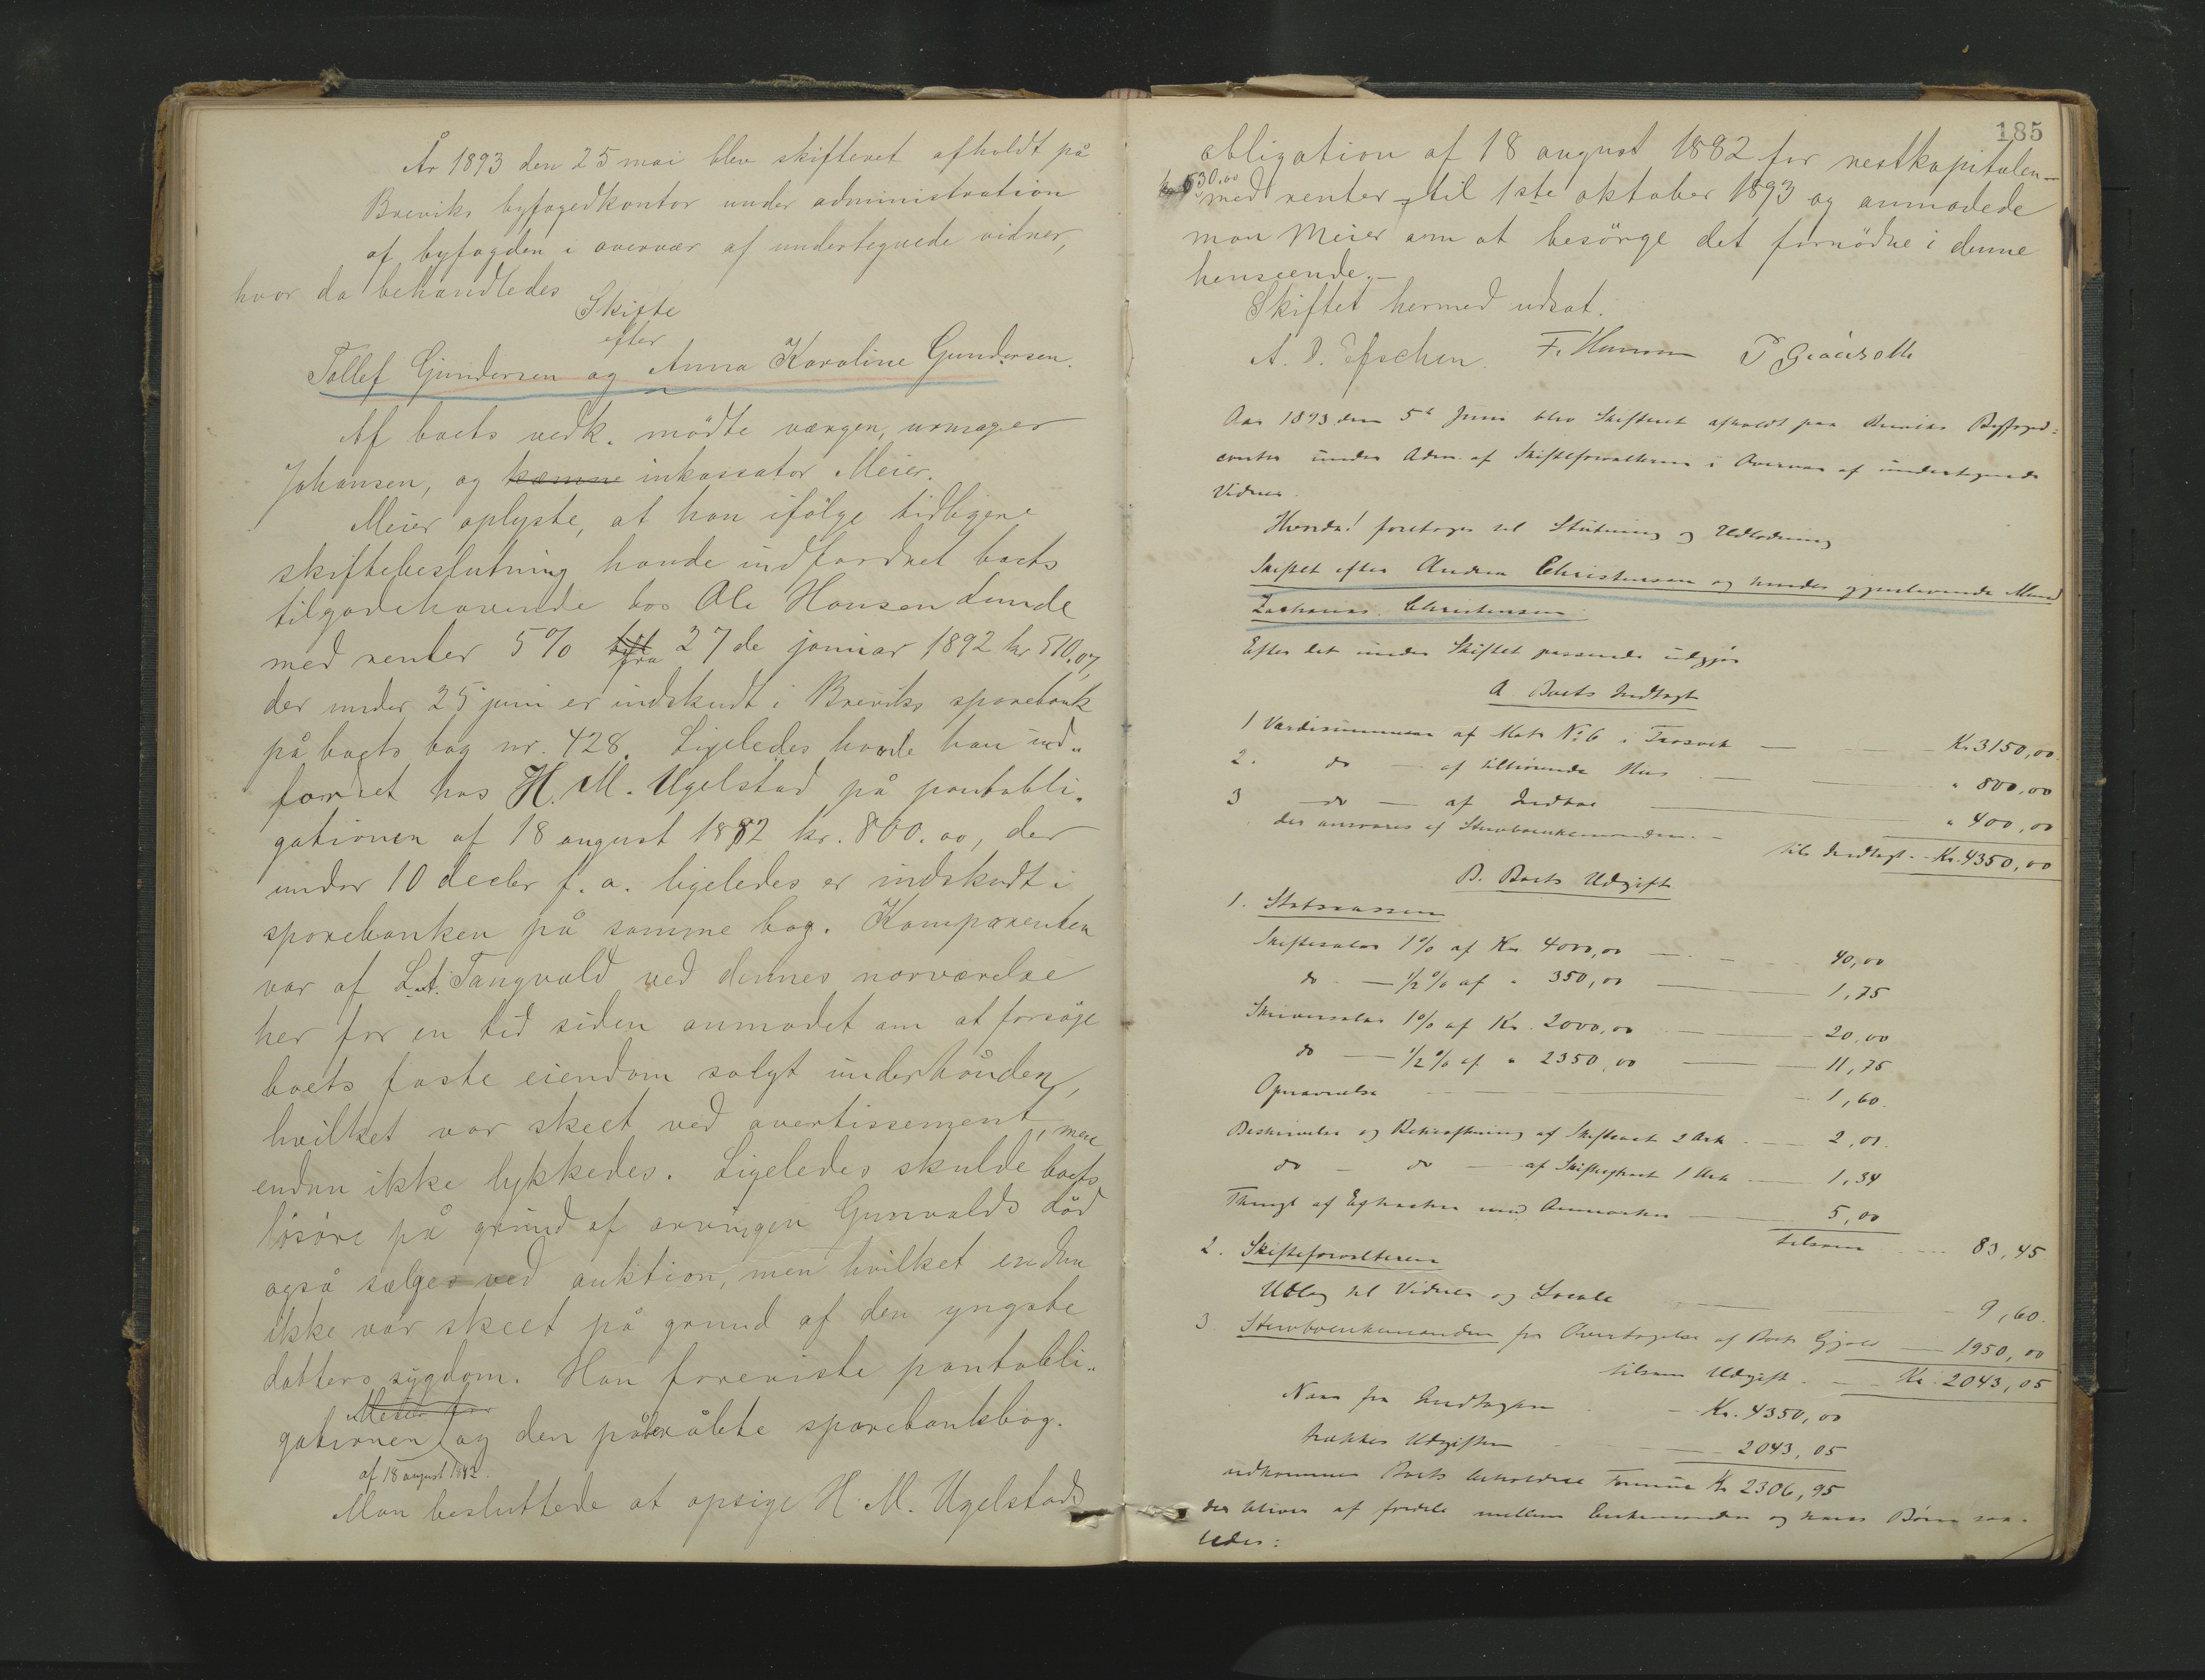 År 1893 den 25 mai blev skifteret afholdt på
Breviks byfogedkontor under administration
af byfogden i overvær af undertegnede vidner,
hvor da behandledes
Skifte
efter
Tollef Gundersen og Anna Karoline Gundersen.
Af boets vedk. mødte værgen, urmager
Johansen, og kæmne inkassator Meier.
Meier oplyste, at han ifölge tidligere
skiftebeslutning havde indfordret boets
tilgodehavende hos Ole Hansen Lunde
med renter 5% fra 27de januar 1892 kr 510,07,
der under 25 juni er indskudt i Breviks sparebank
på boets bog nr. 428. Ligeledes havde han ind-
fordret hos H. M. Ugelstad på pantobli-
gationen af 18 august 1882 kr. 800.00, der
under 10 decbr f. a. ligeledes er indskudt i
sparebanken på samme bog. Komparenten
var af L. A. Tangvald ved dennes nærværelse
her for en tid siden anmodet om at forsøge
boets faste eiendom solgt underhånden,
hvilket var skeet ved avertissement, men
endnu ikke lykkedes. Ligeledes skulde boets
lösöre på grund af arvingen Gunvalds död
også sælges ved auktion, men hvilket endnu
ikke var skeet på grund af den yngste
datters sygdom. Han foreviste pantobli-
Meier for
gationen og den påberåbte sparebanksbog.
af 18 august 1882.
Man besluttede at opsige H. M. Ugelstads
185
obligation af 18 august 1882 for restkapitalen
kr 530.00
med renter til 1ste oktober 1893 og anmodede
man Meier om at besörge det fornödne i denne
henseende.
Skiftet hermed udsat.
A. F. Hansen P
Aar 1893 den 5te Juni blev Skifteret afholdt paa Breviks Byfoged-
contor under Adm. af Skifteforvalteren i Overvær af undertegnede
Vidner.
Hvorda! foretoges til Slutning og Udlodning
Skiftet efter Andrea Christensen og hendes gjenlevende Mand
Zacharias Christensen.
Efter det under Skiftet passerede udgjør
A. Boets Indtægt
1 Værdisummen af Matr No 6 i Trosvik Kr. 3150,00.
2. do af tilhørende Hus " 800,00
3 do af Indbo " 400,00
der ansvares af Stervboenkemanden.
tils Indtægt Kr. 4350,00
B. Boets Udgift
1. Statscassen
Skiftesalær 1% af Kr. 4000,00 40,00
do 1/2% af " 350,00 1,75
Skriversalær 1% af Kr. 2000,00 20,00
do 1/2% af " 2350,00 11,75
Opnævnelse 1,60.
Beskrivelse og Bekræftning af Skifteact 2 Ark 2,01.
do do af Skifteextract 1 Ark 1,34
Thingl af Extracten med Anmærkn 5,00
tilsam 83,45
2. Skifteforvalteren
Udlæg til Vidner og Locale 9,60.
3. Stervboenkemanden for Overtagelse af Boets Gjæld 1950,00
tilsam Udgift Kr. 2043,05
Naar fra Indtægten Kr. 4350,00
trækkes Udgiften 2043,05
udkommer Boets beholdne Formue Kr 2306,95
der bliver at fordele mellem Enkemanden og hans Børn saa-
ledes: